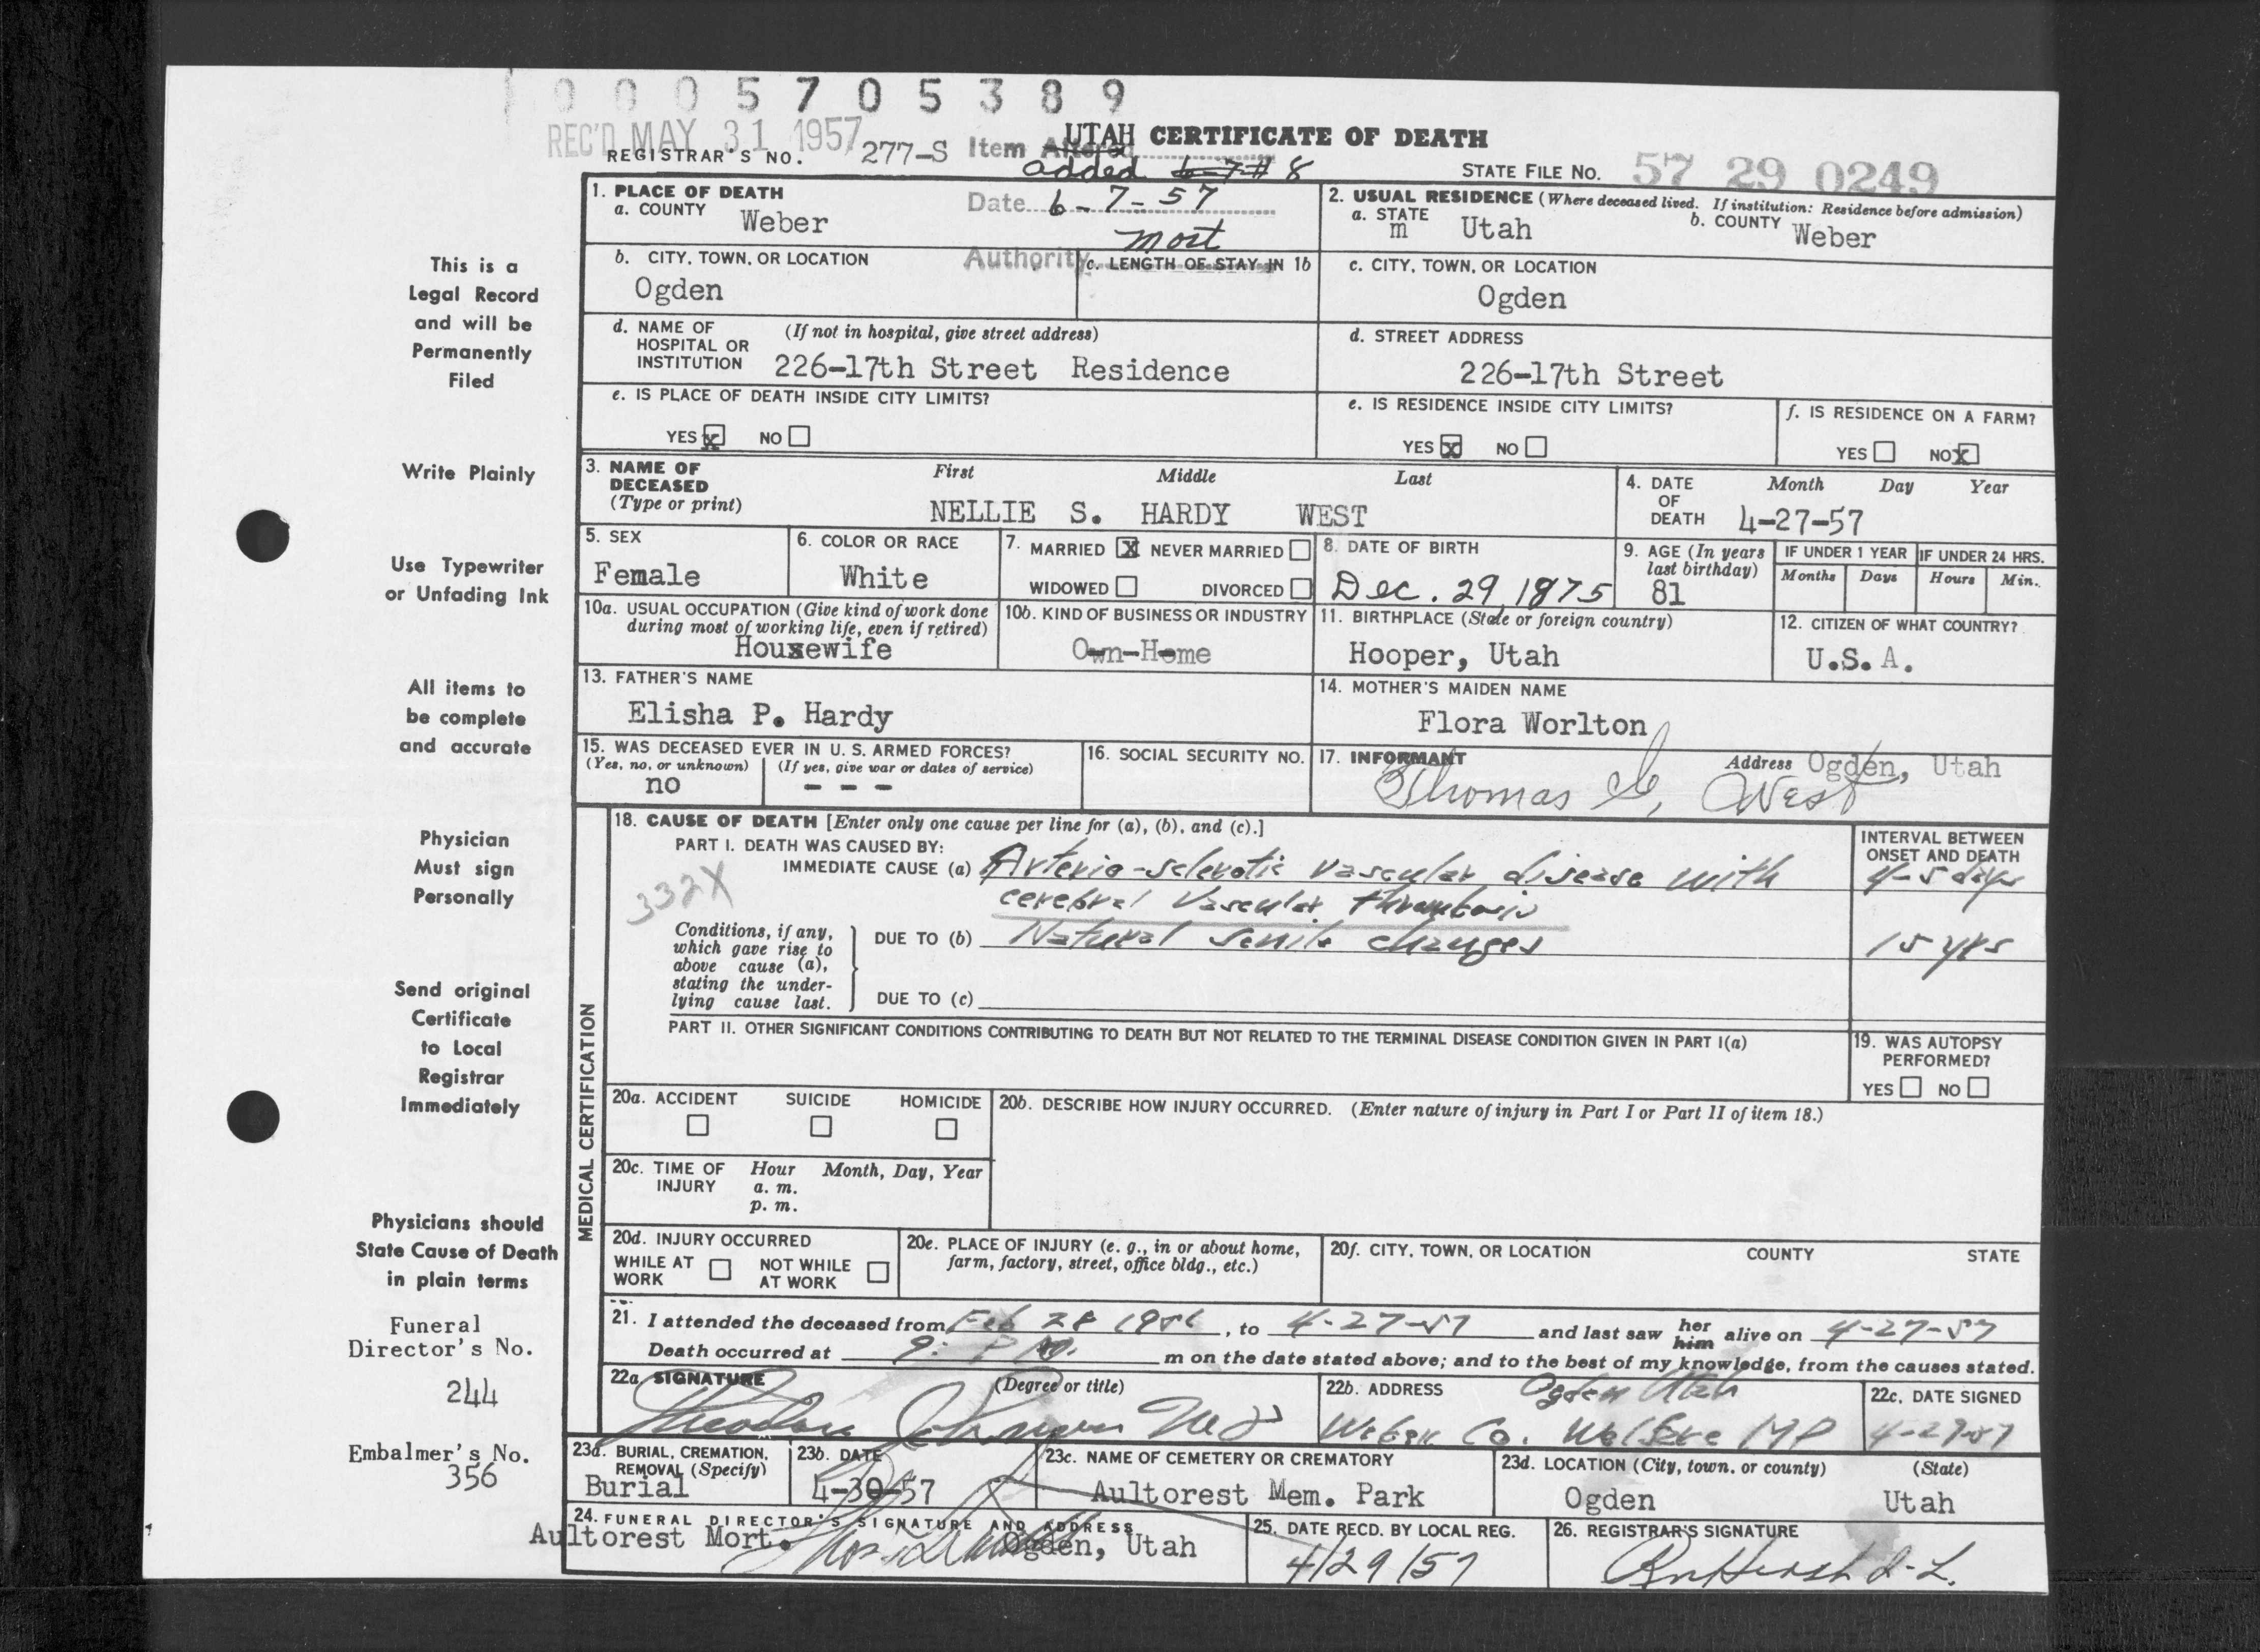 0005705389
REC'D MAY 31 1957
UTAH CERTIFICATE OF DEATH
REGISTRAR'S NO. 277-S Item Altered
added 6-7 # 8
STATE FILE NO. 57 29 0249
1. PLACE OF DEATH
a. COUNTY Weber
Date 6-7-57
Mort
Authority
2. USUAL RESIDENCE (Where deceased lived. If institution: Residence before admission)
a. STATE m Utah b. COUNTY Weber
b. CITY, TOWN, OR LOCATION
Ogden
c. LENGTH OF STAY IN 1b
c. CITY, TOWN, OR LOCATION
Ogden
d. NAME OF HOSPITAL OR INSTITUTION (If not in hospital, give street address)
226-17th Street Residence
d. STREET ADDRESS
226-17th Street
e. IS PLACE OF DEATH INSIDE CITY LIMITS?
YES x NO
e. IS RESIDENCE INSIDE CITY LIMITS?
YES x NO
f. IS RESIDENCE ON A FARM?
YES NO x
3. NAME OF DECEASED (Type or print)
First Middle Last
NELLIE S. HARDY WEST
4. DATE OF DEATH Month Day Year
4-27-57
5. SEX
Female
6. COLOR OR RACE
White
7. MARRIED X NEVER MARRIED
WIDOWED DIVORCED
8. DATE OF BIRTH
Dec. 29, 1875
9. AGE (In years last birthday)
81
IF UNDER 1 YEAR IF UNDER 24 HRS.
Months Days Hours Min.
10a. USUAL OCCUPATION (Give kind of work done during most of working life, even if retired)
Housewife
10b. KIND OF BUSINESS OR INDUSTRY
Own-Home
11. BIRTHPLACE (State or foreign country)
Hooper, Utah
12. CITIZEN OF WHAT COUNTRY?
U.S.A.
13. FATHER'S NAME
Elisha P. Hardy
14. MOTHER'S MAIDEN NAME
Flora Worlton
15. WAS DECEASED EVER IN U. S. ARMED FORCES?
(Yes, no, or unknown) (If yes, give war or dates of service)
no - - -
16. SOCIAL SECURITY NO.
17. INFORMANT Address Ogden, Utah
Thomas G. West
MEDICAL CERTIFICATION
18. CAUSE OF DEATH [Enter only one cause per line for (a), (b), and (c).]
PART I. DEATH WAS CAUSED BY:
IMMEDIATE CAUSE (a) Arterio-sclerotic vascular disease with
cerebral vascular thrombosis
332X
INTERVAL BETWEEN ONSET AND DEATH
4-5 days
Conditions, if any, which gave rise to above cause (a), stating the underlying cause last.
DUE TO (b) Natural senile changes
15 yrs
DUE TO (c)
PART II. OTHER SIGNIFICANT CONDITIONS CONTRIBUTING TO DEATH BUT NOT RELATED TO THE TERMINAL DISEASE CONDITION GIVEN IN PART I(a)
19. WAS AUTOPSY PERFORMED?
YES NO
20a. ACCIDENT SUICIDE HOMICIDE
20b. DESCRIBE HOW INJURY OCCURRED. (Enter nature of injury in Part I or Part II of item 18.)
20c. TIME OF INJURY Hour Month, Day, Year
a. m.
p. m.
20d. INJURY OCCURRED
WHILE AT WORK NOT WHILE AT WORK
20e. PLACE OF INJURY (e. g., in or about home, farm, factory, street, office bldg., etc.)
20f. CITY, TOWN, OR LOCATION COUNTY STATE
21. I attended the deceased from Feb 28 1956, to 4-27-57 and last saw her him alive on 4-27-57
Death occurred at 9: P M. m on the date stated above; and to the best of my knowledge, from the causes stated.
22a. SIGNATURE (Degree or title)
Theodore MD
22b. ADDRESS Ogden Utah
Weber Co. Welfare MD
22c. DATE SIGNED
4-29-57
23a. BURIAL, CREMATION, REMOVAL (Specify)
Burial
23b. DATE
4-30-57
23c. NAME OF CEMETERY OR CREMATORY
Aultorest Mem. Park
23d. LOCATION (City, town, or county) (State)
Ogden Utah
24. FUNERAL DIRECTOR'S SIGNATURE AND ADDRESS
Aultorest Mort. Ogden, Utah
25. DATE RECD. BY LOCAL REG.
4/29/57
26. REGISTRAR'S SIGNATURE
This is a
Legal Record
and will be
Permanently
Filed
Write Plainly
Use Typewriter
or Unfading Ink
All items to
be complete
and accurate
Physician
Must sign
Personally
Send original
Certificate
to Local
Registrar
Immediately
Physicians should
State Cause of Death
in plain terms
Funeral
Director's No.
244
Embalmer's No.
356